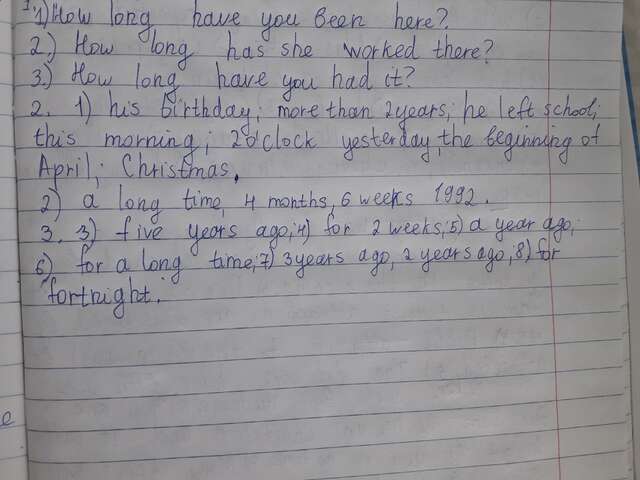 1. 1) How long have you been here?
2) How long has she worked there?
3) How long have you had it?
2. 1) his birthday; more than 2 years; he left school;
this morning; 2 o'clock yesterday, the beginning of
April; Christmas.
2) a long time, 4 months, 6 weeks 1992.
3. 3) five years ago; 4) for 2 weeks; 5) a year ago;
6) for a long time; 7) 3 years ago, 2 years ago; 8) for
fortnight.
e